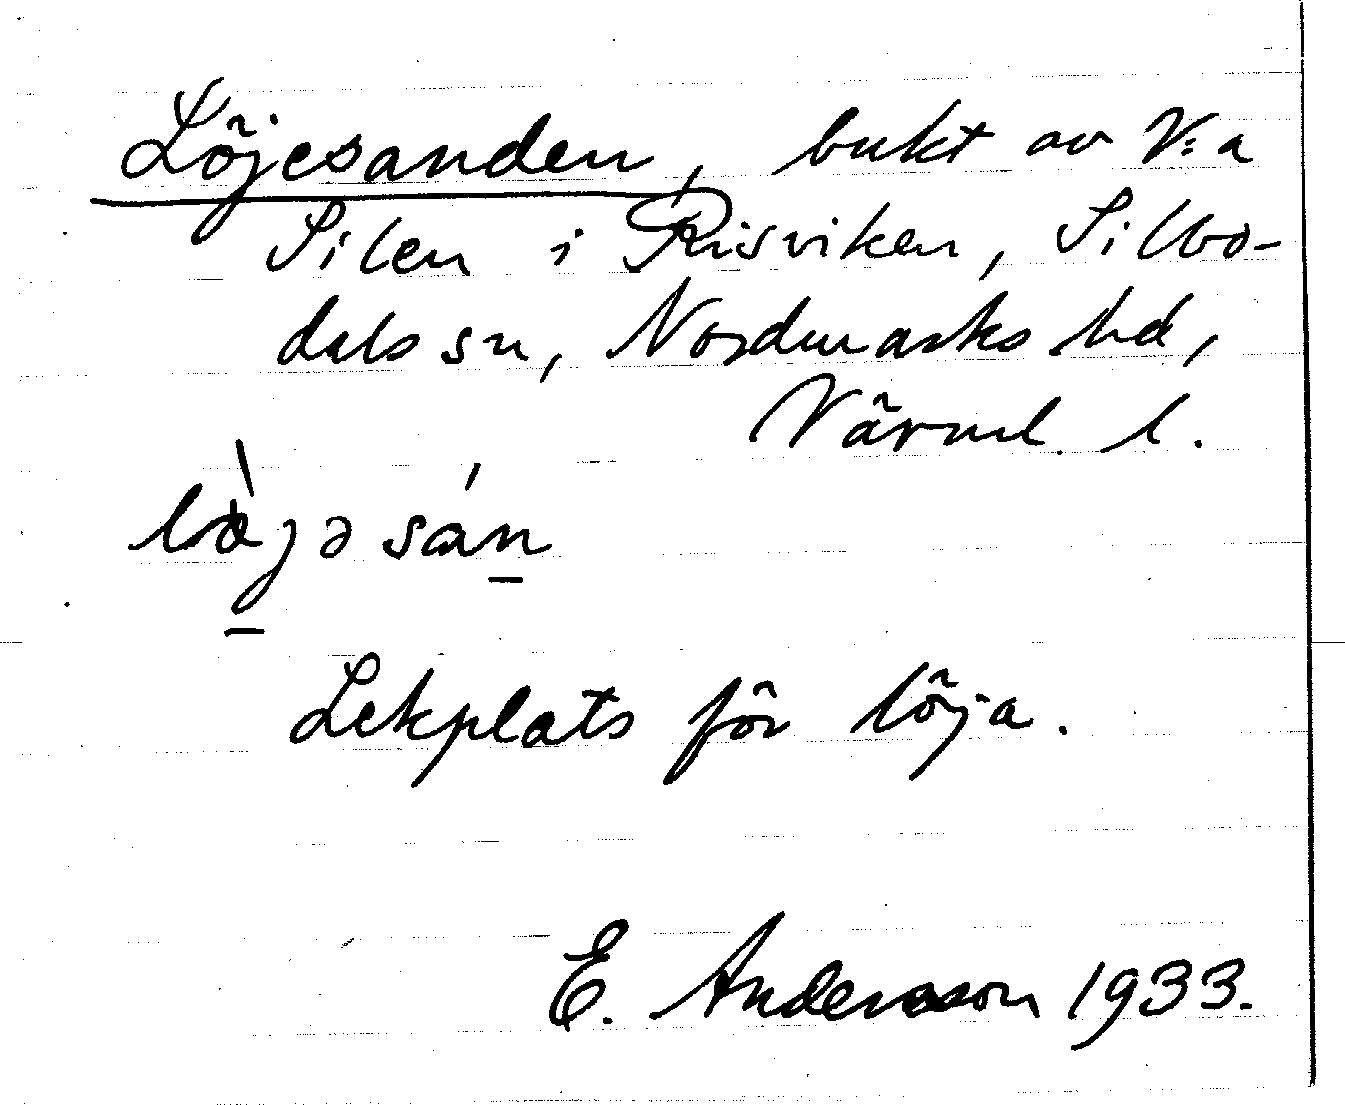 Löjesanden, bukt av V:a
Silen i Risviken, Silbo-
dals sn, Nordmarks hd,
Värml. l.
lœ̀jəsán
Lekplats för löja.
E. Andersson 1933.